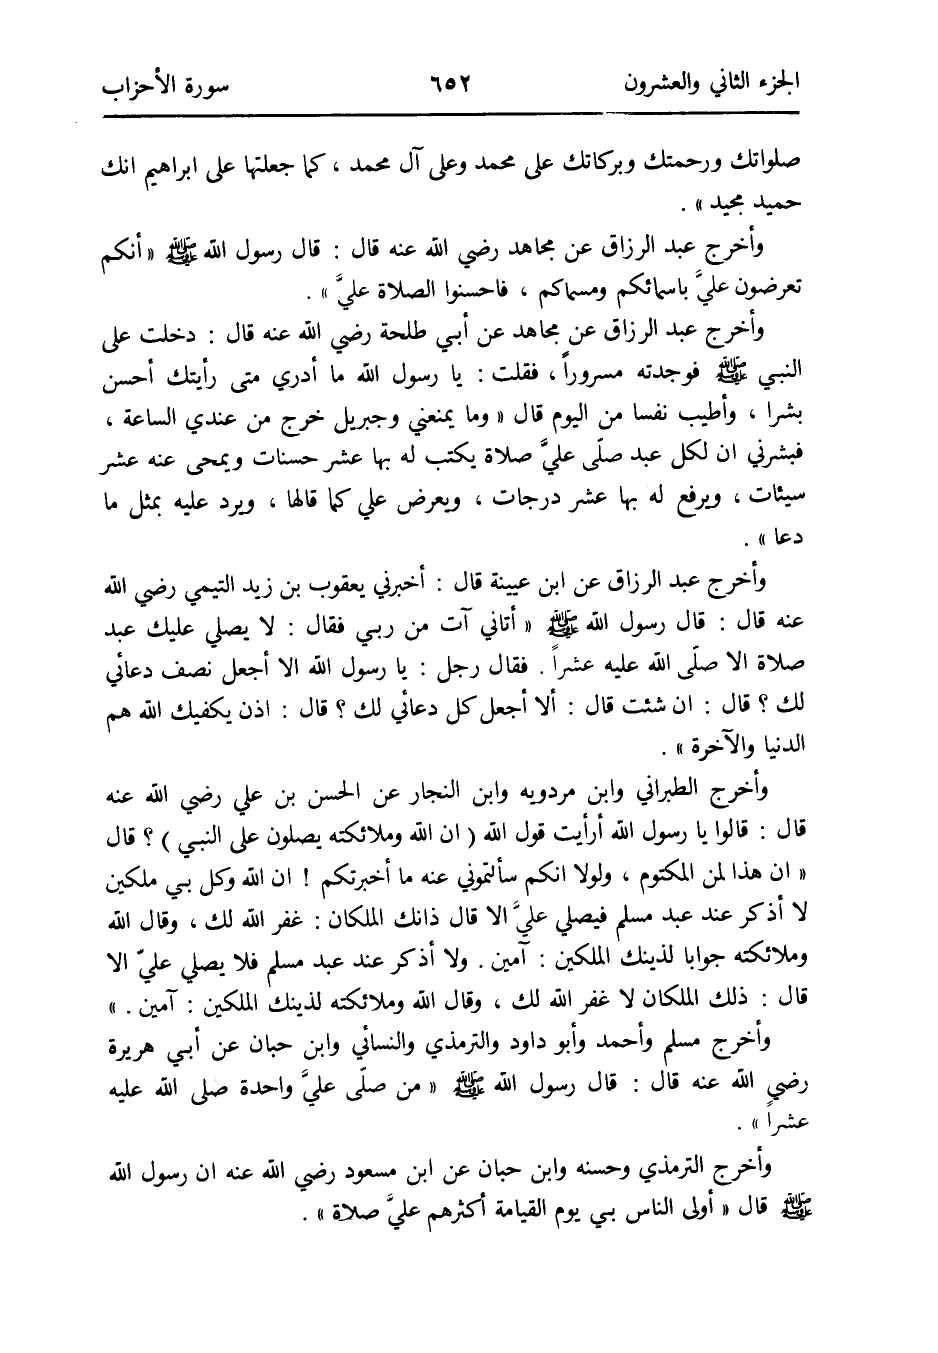 الجزء الثاني والعشرون ٦٥٢ سورة الأحزاب
صلواتك ورحمتك وبركاتك على محمد وعلى آل محمد ، كما جعلتها على ابراهيم انك
حميد مجيد » .
وأخرج عبد الرزاق عن مجاهد رضي الله عنه قال : قال رسول الله ﷺ « أنكم
تعرضون عليَّ باسمائكم ومسماكم ، فاحسنوا الصلاة عليَّ » .
وأخرج عبد الرزاق عن مجاهد عن أبي طلحة رضي الله عنه قال : دخلت على
النبي ﷺ فوجدته مسروراً ، فقلت : يا رسول الله ما أدري متى رأيتك أحسن
بشرا ، وأطيب نفسا من اليوم قال « وما يمنعني وجبريل خرج من عندي الساعة ،
فبشرني ان لكل عبد صلّى عليَّ صلاة يكتب له بها عشر حسنات ويمحى عنه عشر
سيئات ، ويرفع له بها عشر درجات ، ويعرض علي كما قالها ، ويرد عليه بمثل ما
دعا » .
وأخرج عبد الرزاق عن ابن عيينة قال : أخبرني يعقوب بن زيد التيمي رضي الله
عنه قال : قال رسول الله ﷺ « أتاني آت من ربي فقال : لا يصلي عليك عبد
صلاة الا صلّى الله عليه عشراً . فقال رجل : يا رسول الله الا أجعل نصف دعائي
لك ؟ قال : ان شئت قال : ألا أجعل كل دعائي لك ؟ قال : اذن يكفيك الله هم
الدنيا والآخرة » .
وأخرج الطبراني وابن مردويه وابن النجار عن الحسن بن علي رضي الله عنه
قال : قالوا يا رسول الله أرأيت قول الله ( ان الله وملائكته يصلون على النبي ) ؟ قال
« ان هذا لمن المكتوم ، ولولا انكم سألتموني عنه ما أخبرتكم ! ان الله وكل بي ملكين
لا أذكر عند عبد مسلم فيصلي عليَّ الا قال ذانك الملكان : غفر الله لك ، وقال الله
وملائكته جوابا لذينك الملكين : آمين . ولا أذكر عند عبد مسلم فلا يصلي عليّ الا
قال : ذلك الملكان لا غفر الله لك ، وقال الله وملائكته لذينك الملكين : آمين . »
وأخرج مسلم وأحمد وأبو داود والترمذي والنسائي وابن حبان عن أبي هريرة
رضي الله عنه قال : قال رسول الله ﷺ « من صلّى عليَّ واحدة صلى الله عليه
عشراً » .
وأخرج الترمذي وحسنه وابن حبان عن ابن مسعود رضي الله عنه ان رسول الله
ﷺ قال « أولى الناس بي يوم القيامة أكثرهم عليَّ صلاة » .